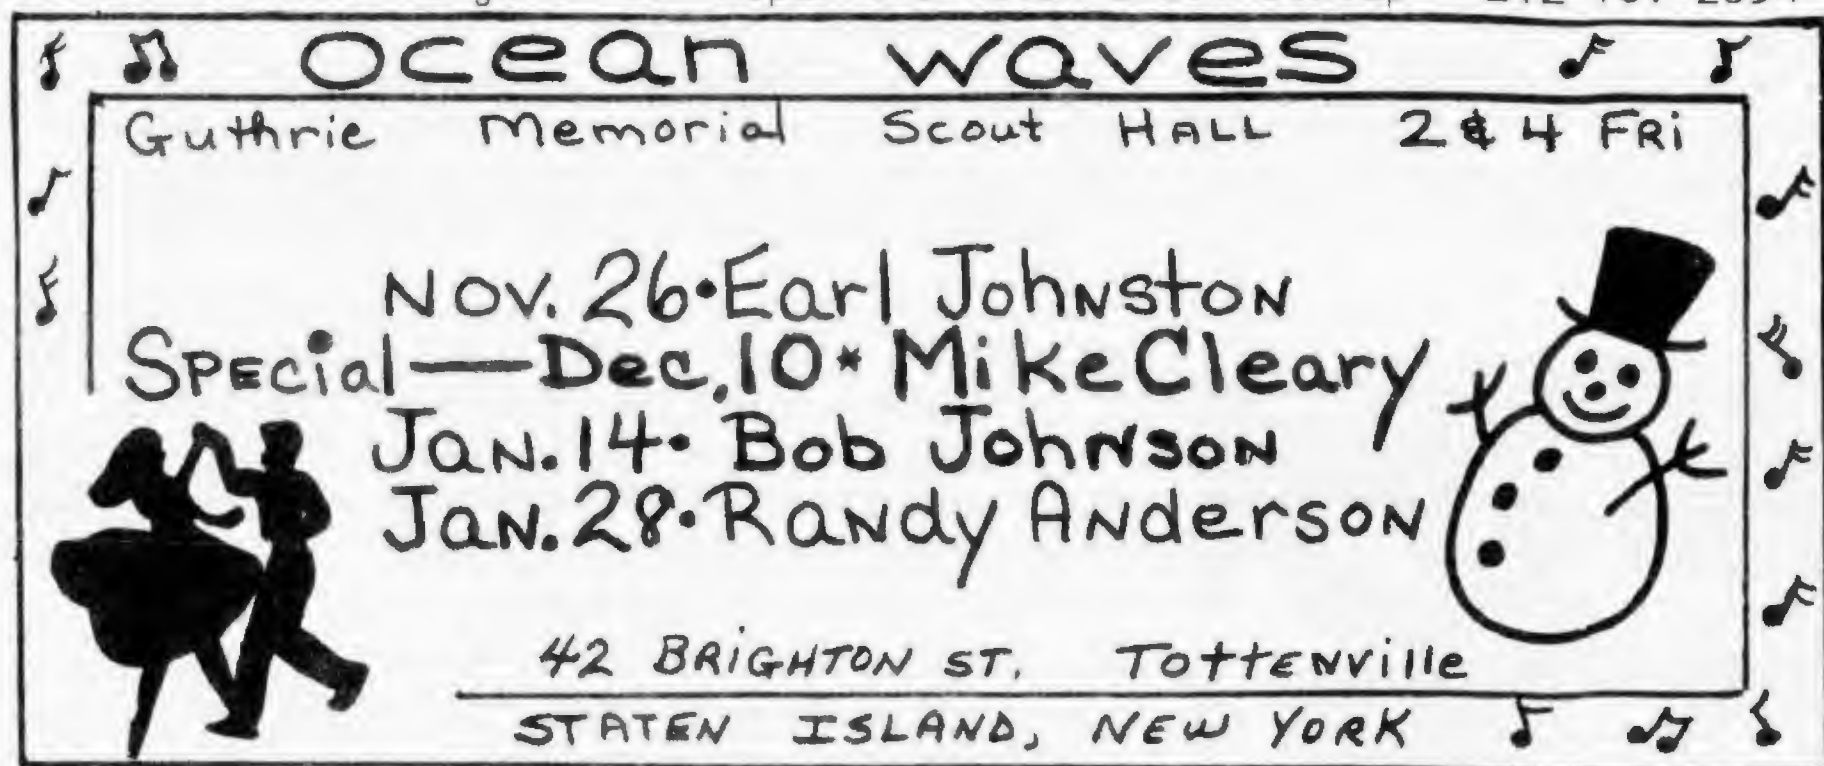 ocean waves
Guthrie Memorial Scout HALL 2 & 4 FRi
NOV. 26 • Earl JohNstoN
SPECial — Dec. 10 * Mike Cleary
JaN. 14 • Bob JohNsoN
JaN. 28 • RaNdy ANdersoN
42 BRiGHTON ST. TottENVille
STATEN ISLAND, NEW YORK